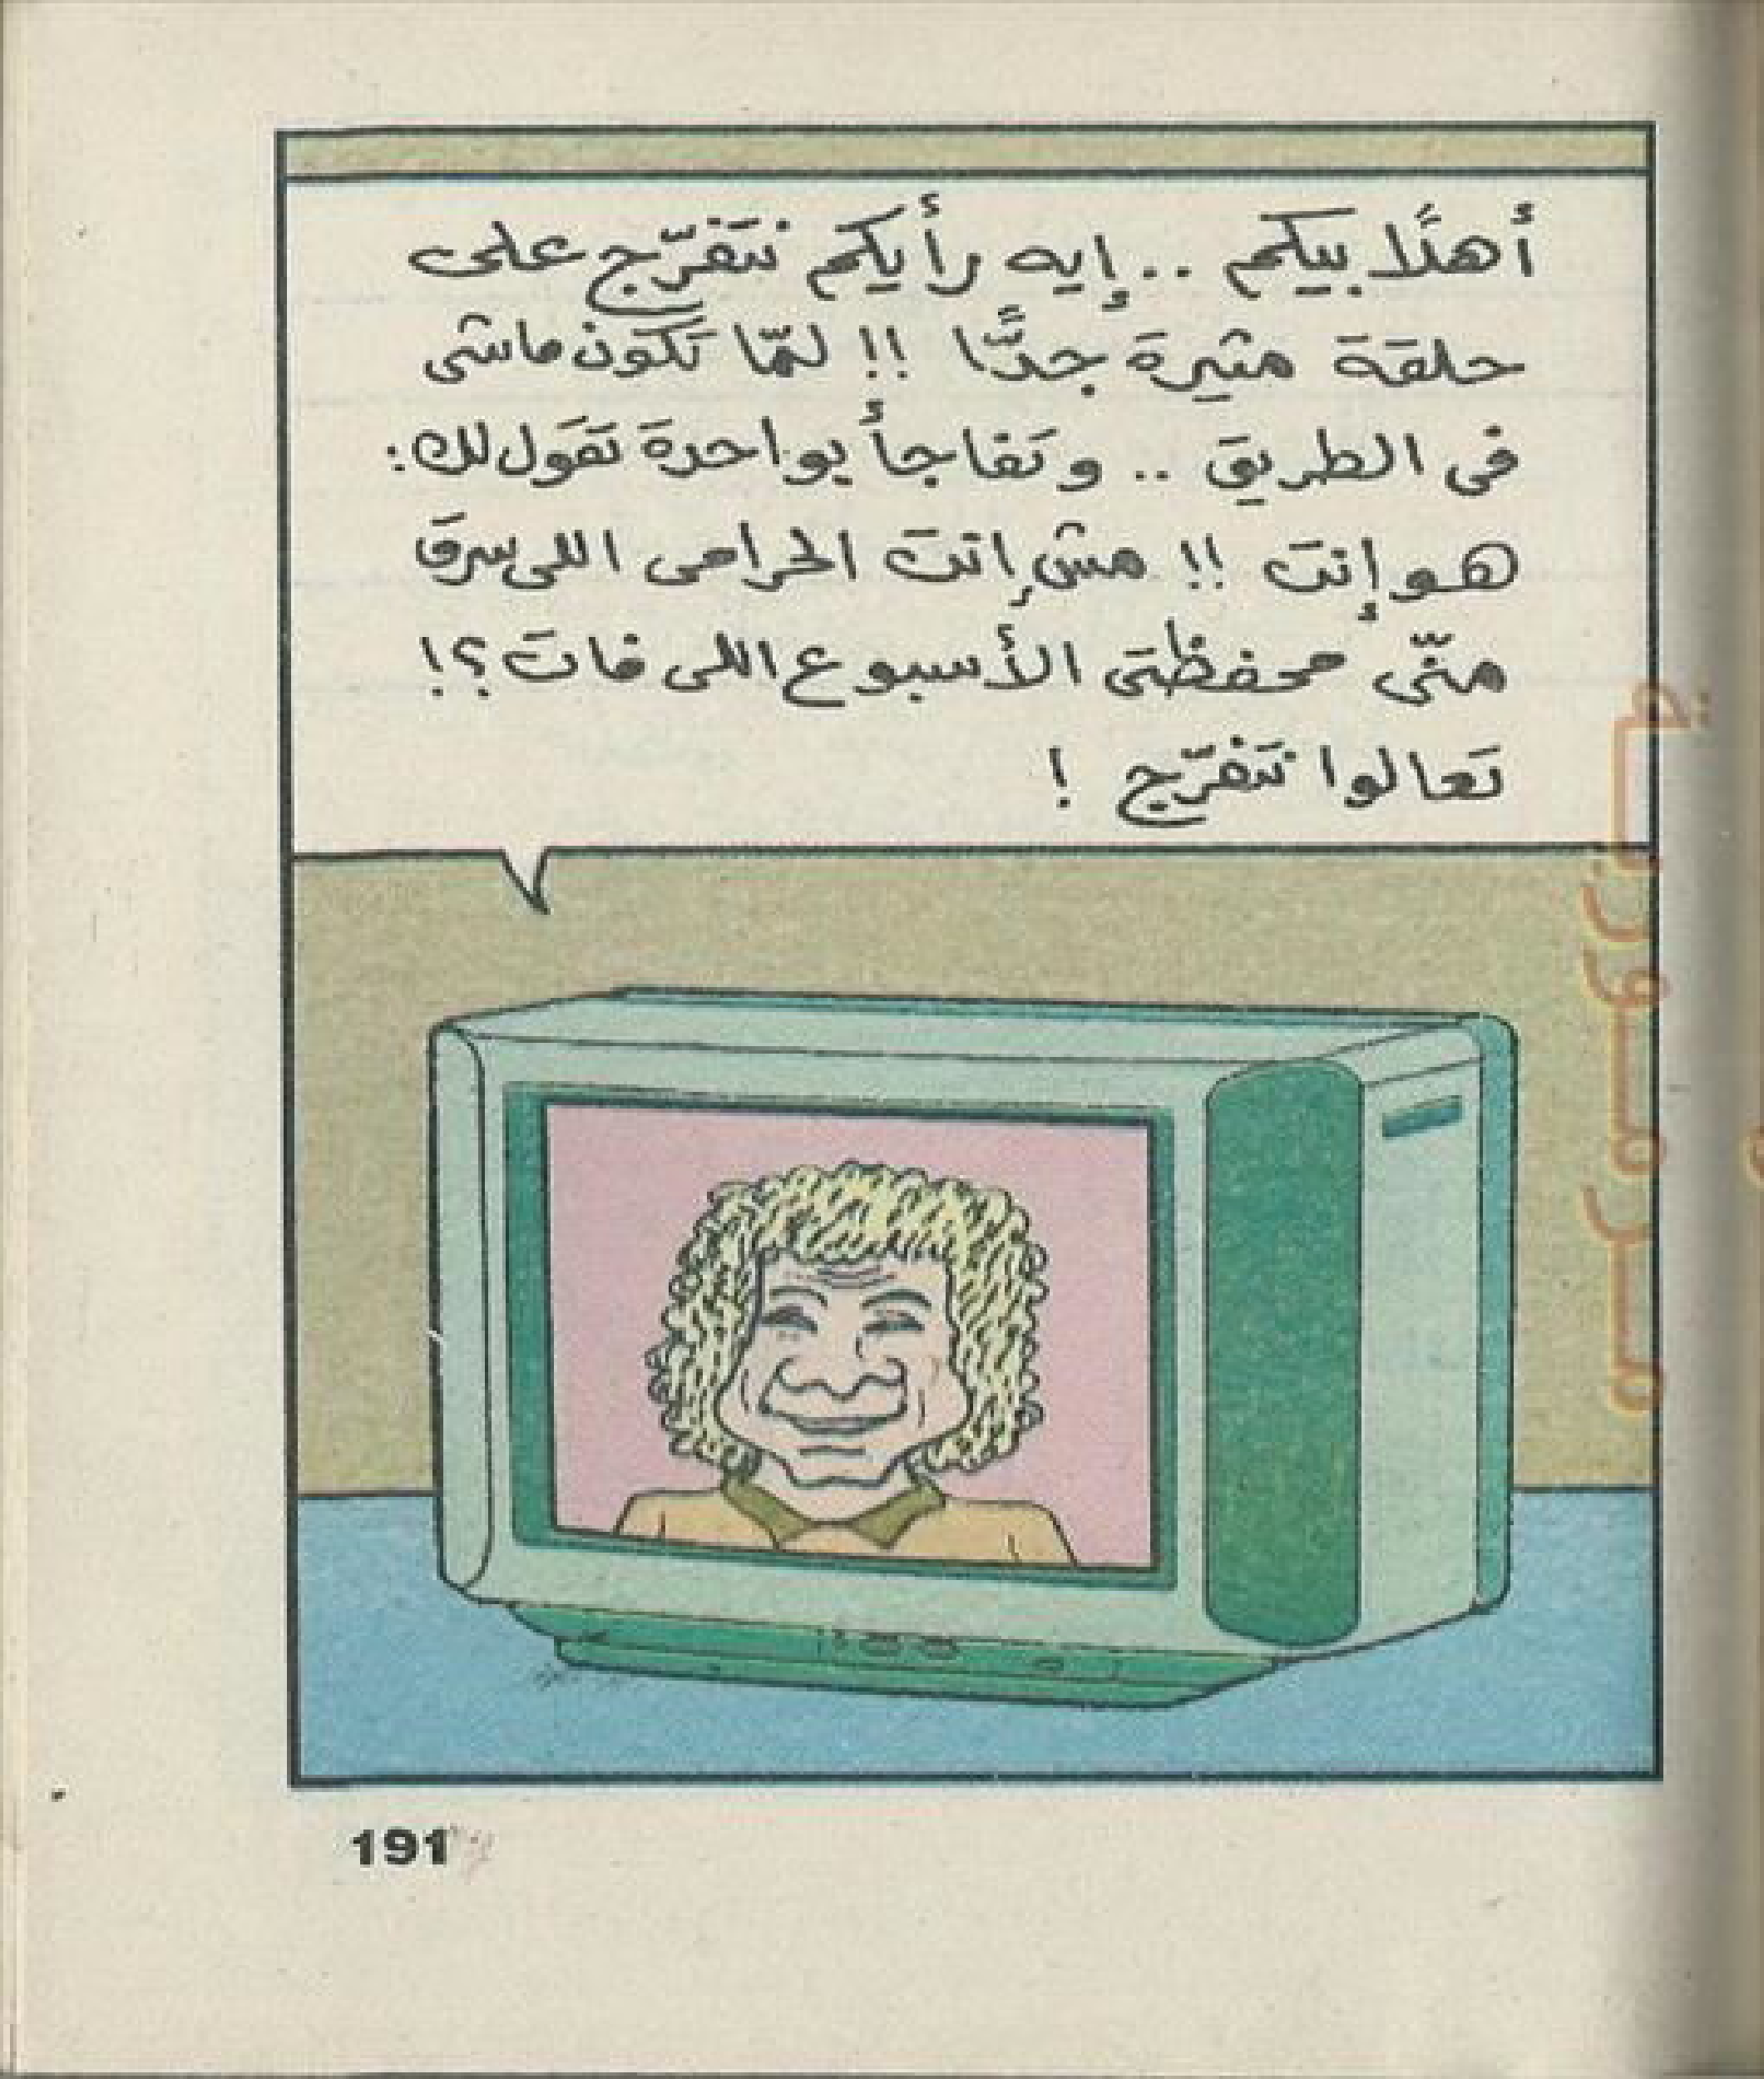 أهلًا بيكم .. إيه رأيكم نتفرّج على
حلقة مثيرة جدًّا !! لمّا تكون ماشى
فى الطريق .. وتفاجأ بواحدة تقول لك:
هو إنت !! مش إنت الحرامى اللى سرق
منّى محفظتى الأسبوع اللى فات ؟!
تعالوا نتفرّج !
191